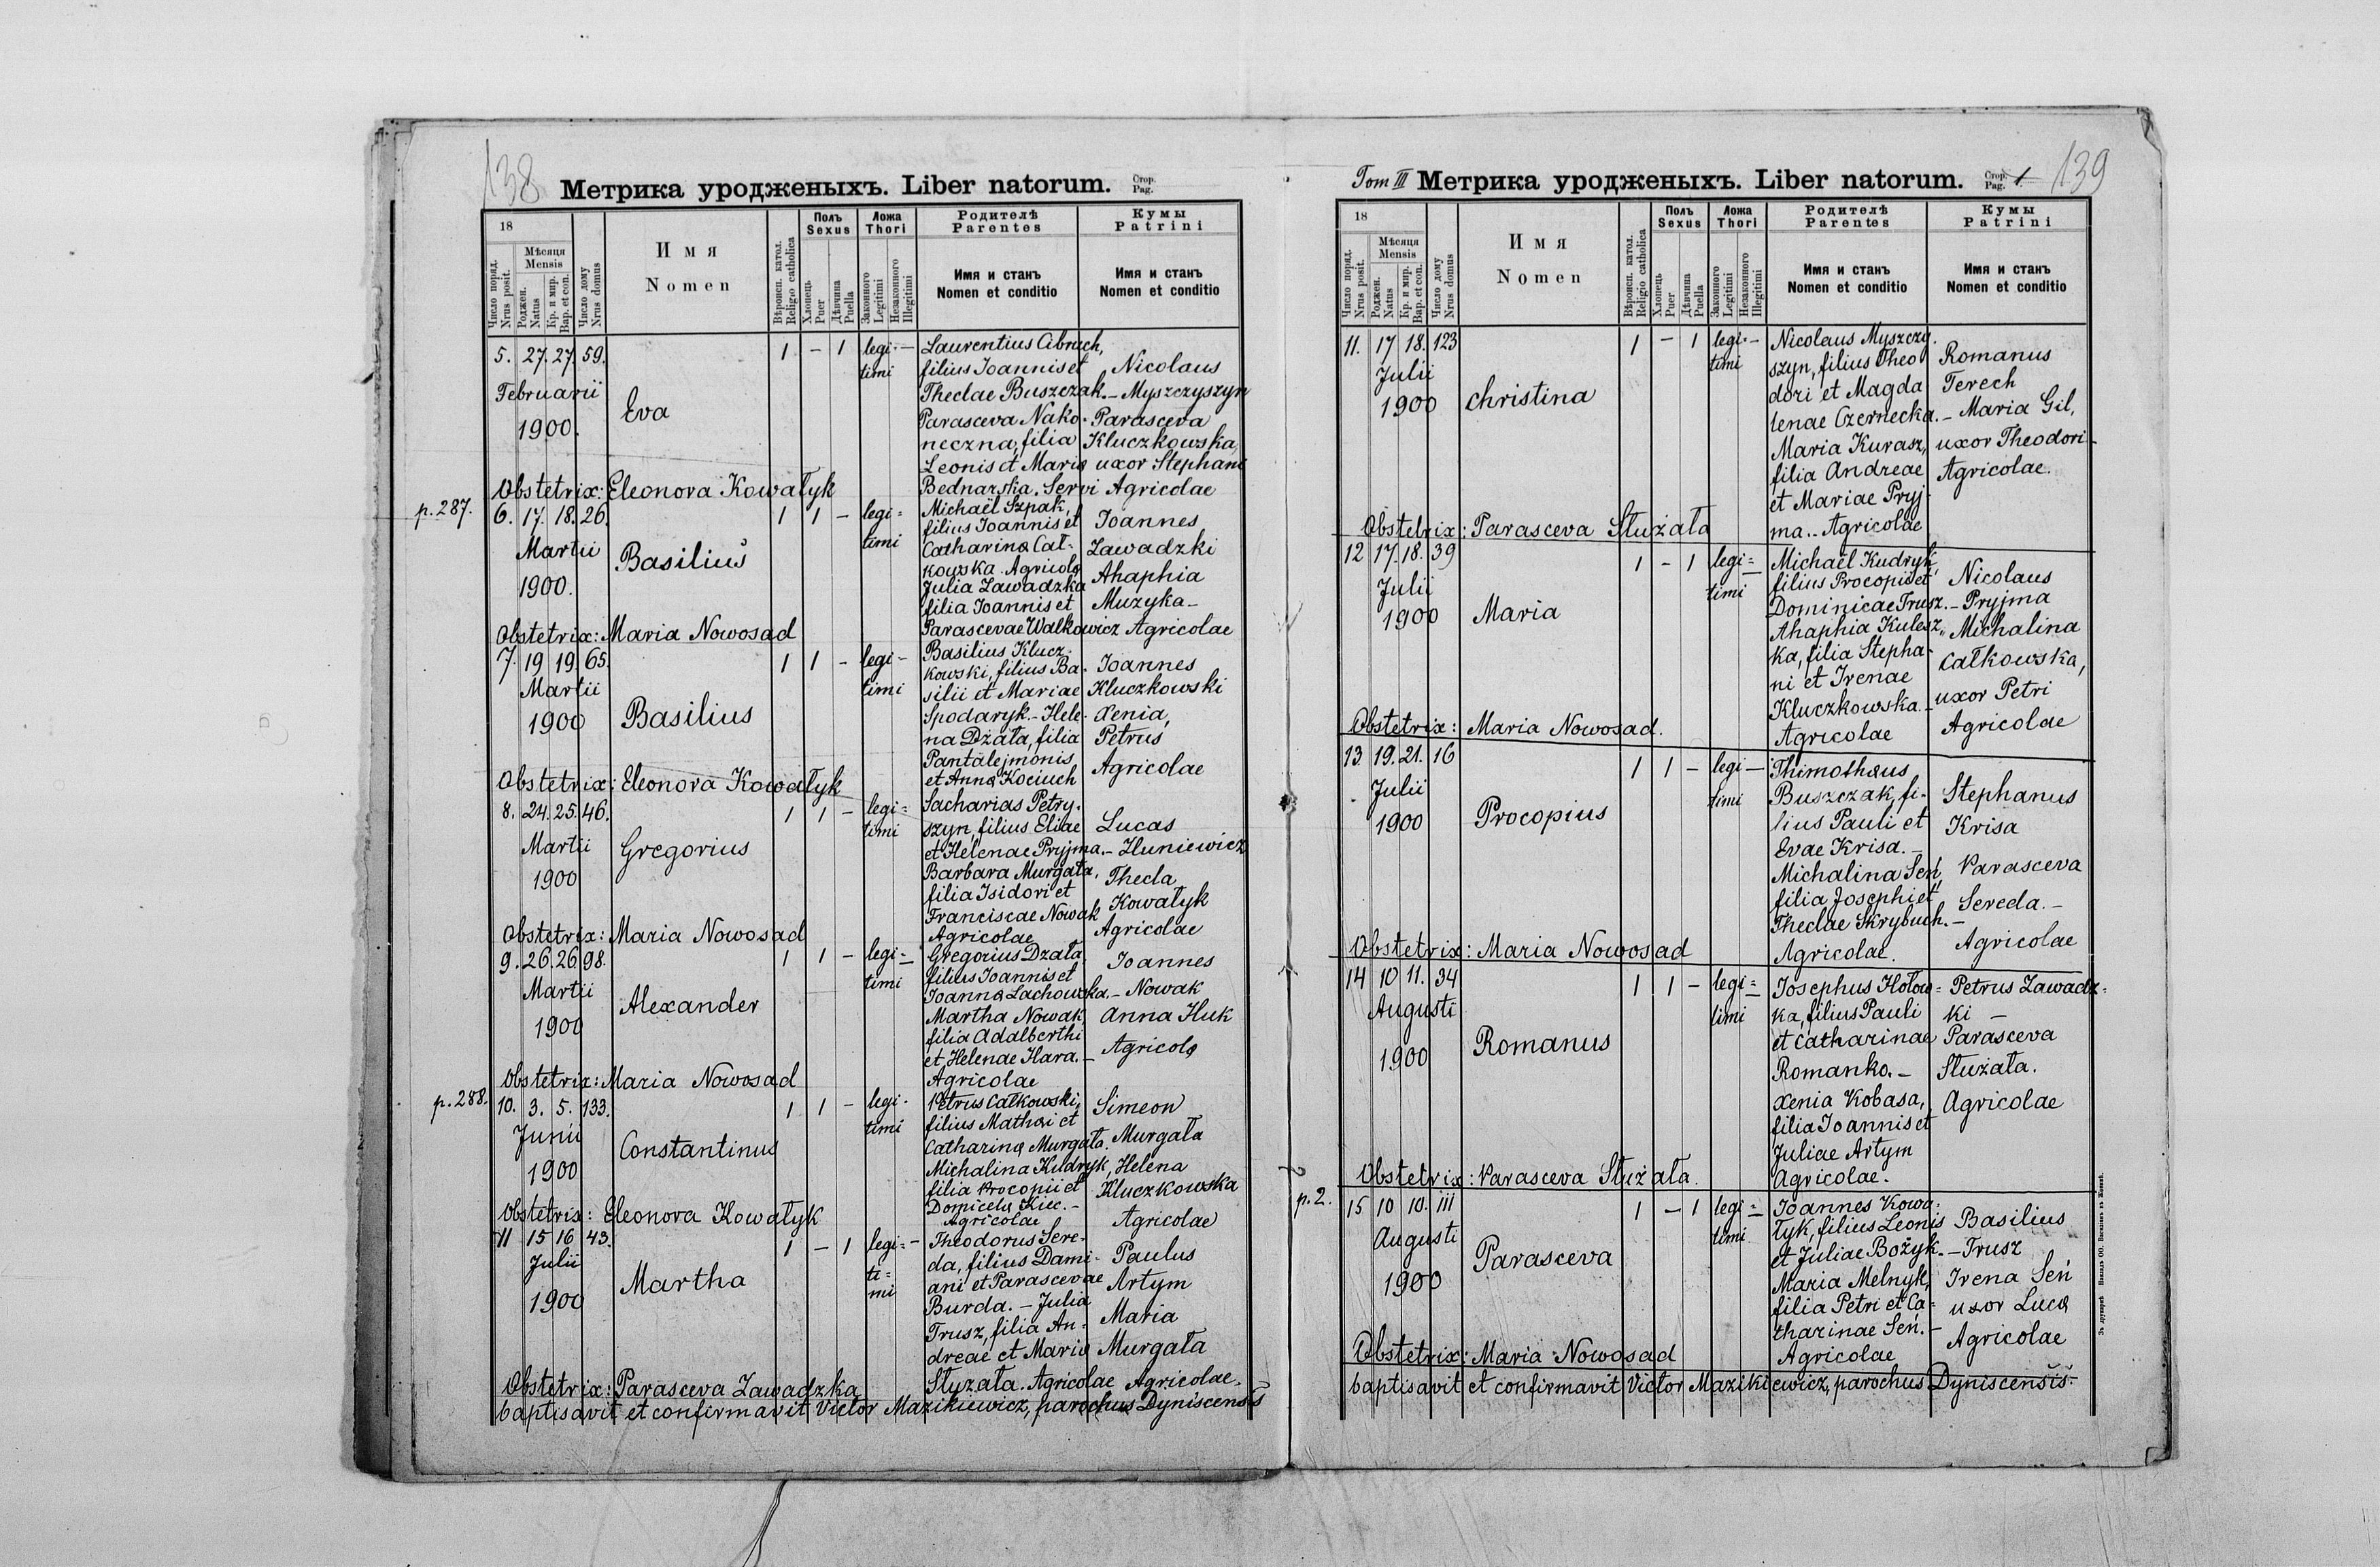 138
Метрика уродженыхъ. Liber natorum. Стор. Pag.
18
Число поряд. Nrus posit.
Мѣсяця Mensis
Роджен. Natus
Кр. и мир. Bap. et con.
Число дому Nrus domus
Имя
Nomen
Вѣроисп. катол. Religio catholica
Полъ Sexus
Хлопець Puer
Дѣвчина Puella
Ложа Thori
Законного Legitimi
Незаконного Illegitimi
Родителѣ
Parentes
Имя и станъ
Nomen et conditio
Кумы
Patrini
Имя и станъ
Nomen et conditio
5. 27. 27. 59.
Februarii
1900.
Eva
1 – 1 legi·–
timi
Laurentius Abruch,
filius Joannis et
Theclae Buszczak.–
Parasceva Nako-
neczna, filia
Leonis et Mariæ
Bednarska. Servi
Nicolaus
Myszczyszyn
Parasceva
Kluczkowska,
uxor Stephani
Agricolae
Obstetrix: Eleonora Kowałyk
p. 287.
6. 17. 18. 26.
Martii
1900.
Basilius
1 1 – legi=
timi
Michaël Szpak,
filius Joannis et
Catharinæ Cał-
kowska. Agricolæ
Julia Zawadzka
filia Joannis et
Parascevae Walkowicz
Joannes
Zawadzki
Ahaphia
Muzyka –
Agricolae
Obstetrix: Maria Nowosad
7. 19 19. 65.
Martii
1900
Basilius
1 1 – legi –
timi
Basilius Klucz-
kowski, filius Ba-
silii et Mariae
Spodaryk. – Hele-
na Dżała, filia
Pantalejmonis
et Annæ Kociuch
Joannes
Kluczkowski
Xenia,
Petrus
Agricolae
Obstetrix: Eleonora Kowałyk
8. 24. 25. 46.
Martii
1900
Gregorius
1 1 – legi=
timi
Sacharias Petry-
szyn, filius Eliae
et Helenae Pryjma.–
Barbara Murgała,
filia Isidori et
Franciscae Nowak
Agricolae
Lucas
Huniewicz
Thecla
Kowałyk
Agricolae
Obstetrix: Maria Nowosad
9. 26. 26. 98.
Martii
1900
Alexander
1 1 – legi=
timi
Gregorius Dżała,
filius Joannis et
Joannæ Lachowska.–
Martha Nowak
filia Adalberthi
et Helenae Hara. –
Agricolae
Joannes
Nowak
Anna Huk
Agricolæ
Obstetrix: Maria Nowosad
p. 288.
10. 3. 5. 133.
Junii
1900
Constantinus
1 1 – legi·
timi
Petrus Całkowski,
filius Mathæi et
Catharinæ Murgała.
Michalina Kudryk,
filia Procopii et
Domicelæ Kiec. –
Agricolae
Simeon
Murgała
Helena
Kluczkowska
Agricolae
Obstetrix: Eleonora Kowałyk
11 15 16 43.
Julii
1900
Martha
1 – 1 legi= –
ti=
mi
Theodorus Sere-
da, filius Dami-
ani et Parascevae
Burda. – Julia
Trusz, filia An-
dreae et Mariæ
Słyżała. Agricolae
Paulus
Artym
Maria
Murgała
Agricolae.
Obstetrix: Parasceva Zawadzka
baptisavit et confirmavit Victor Mazikiewicz, parochus Dyniscensis
Tom III Метрика уродженыхъ. Liber natorum. Стор. Pag. 1 139
18
Число поряд. Nrus posit.
Мѣсяця Mensis
Роджен. Natus
Кр. и мир. Bap. et con.
Число дому Nrus domus
Имя
Nomen
Вѣроисп. катол. Religio catholica
Полъ Sexus
Хлопець Puer
Дѣвчина Puella
Ложа Thori
Законного Legitimi
Незаконного Illegitimi
Родителѣ
Parentes
Имя и станъ
Nomen et conditio
Кумы
Patrini
Имя и станъ
Nomen et conditio
11. 17 18. 123
Julii
1900
Christina
1 – 1 legi·–
timi
Nicolaus Myszczy-
szyn, filius Theo
dori et Magda
lenae Czernecka.–
Maria Kurasz,
filia Andreae
et Mariae Pryj-
ma.. Agricolae
Romanus
Terech
Maria Gil,
uxor Theodori–
Agricolae.
Obstetrix: Parasceva Służała
12 17. 18. 39
Julii
1900
Maria
1 – 1 legi=
timi
Michaël Kudryk,
filius Procopii et
Dominicae Trusz. –
Ahaphia Kulesz,,
ka, filia Stepha-
ni et Irenae
Kluczkowska. –
Agricolae
Nicolaus
Pryjma
Michalina
Całkowska,
uxor Petri
Agricolae
Obstetrix: Maria Nowosad.
13 19. 21. 16
Julii
1900
Procopius
1 1 – legi –
timi
Thimothæus
Buszczak, fi-
lius Pauli et
Evae Krisa. –
Michalina Seń,
filia Josephi et
Theclae Skrybuch. –
Agricolae.
Stephanus
Krisa
Parasceva
Sereda. –
Agricolae
Obstetrix: Maria Nowosad
14 10 11. 34
Augusti
1900
Romanus
1 1 – legi=
timi
Josephus Hołow=
ka, filius Pauli
et Catharinae
Romanko. –
Xenia Kobasa,
filia Joannis et
Juliae Artym
Agricolae.
Petrus Zawadz-
ki –
Parasceva
Służała.
Agricolae
Obstetrix: Parasceva Służała.
p. 2.
15 10 10. 111
Augusti
1900
Parasceva
1 – 1 legi=
timi
Joannes Kowa-
łyk, filius Leonis
et Juliae Bożyk. –
Maria Melnyk,
filia Petri et Ca-
tharinae Seń. –
Agricolae
Basilius
Trusz
Irena Seń
uxor Lucæ
Agricolae
Obstetrix: Maria Nowosad
baptisavit et confirmavit Victor Mazikiewicz, parochus Dyniscensis.